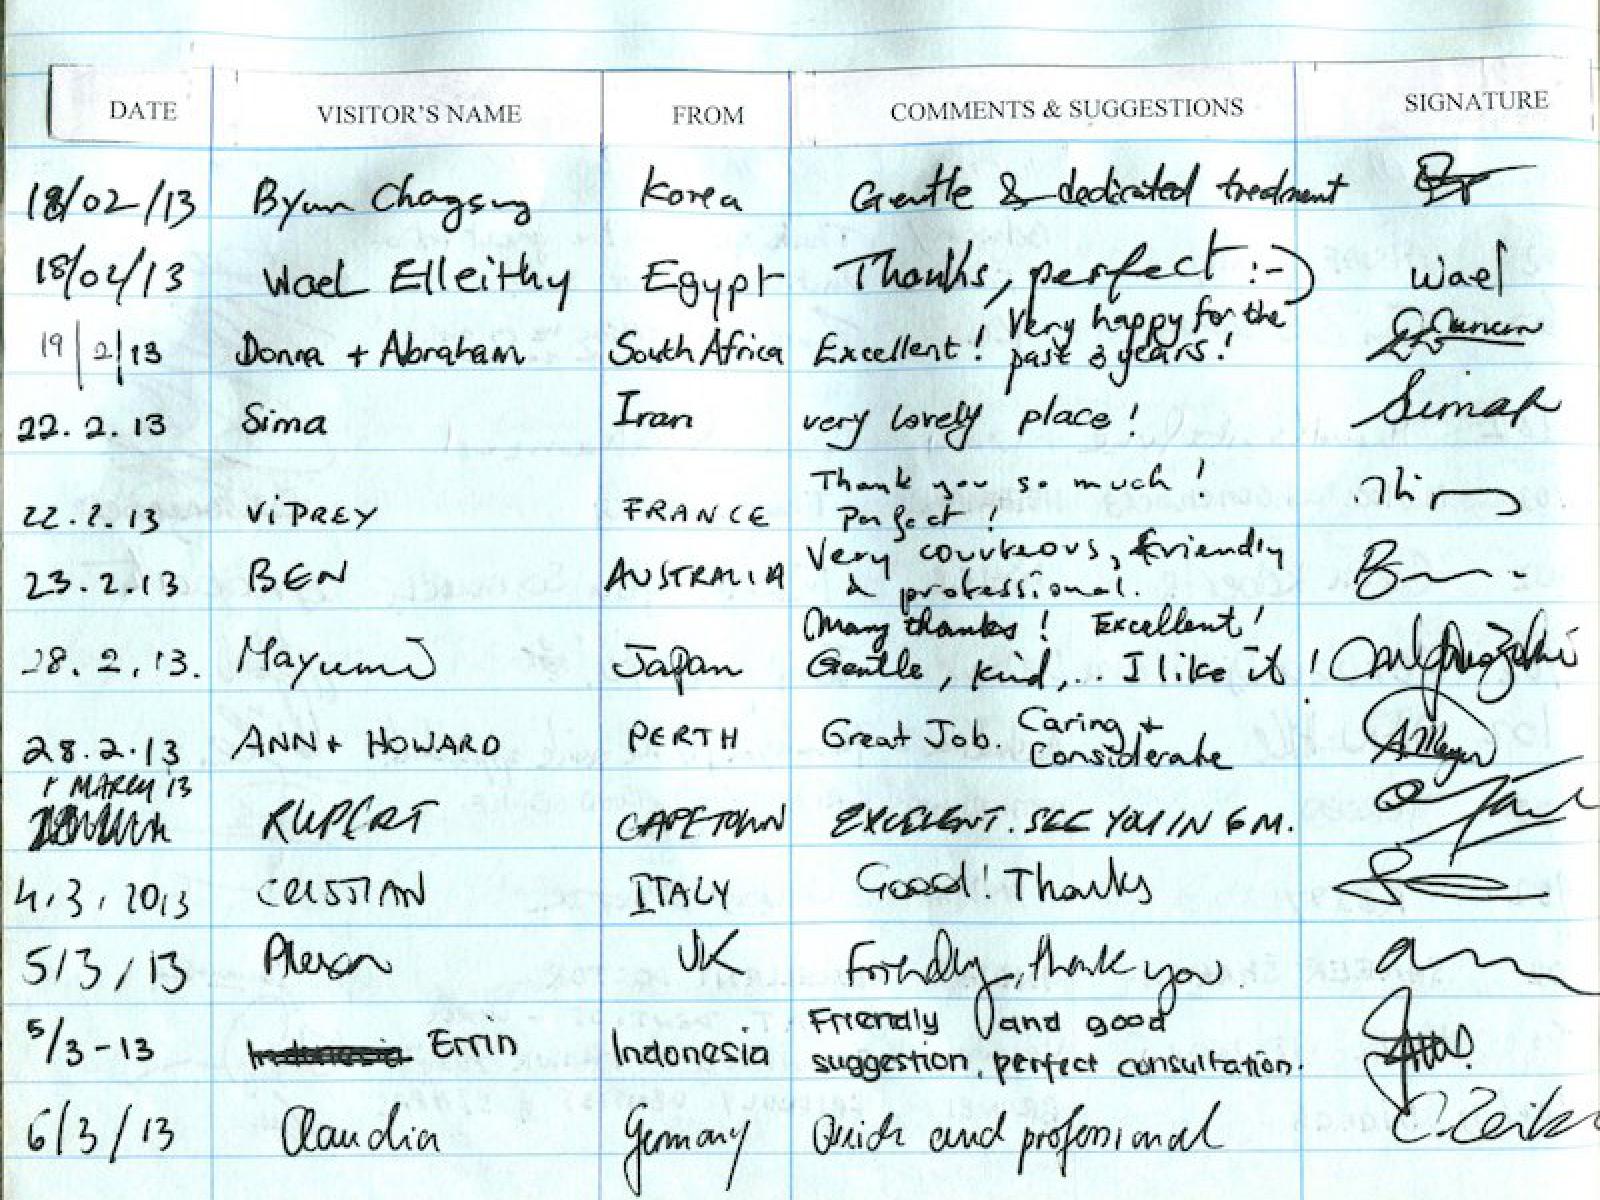 DATE VISITOR'S NAME FROM COMMENTS & SUGGESTIONS SIGNATURE
18/02/13 Byun Korea Gentle & dedicated treatment
18/02/13 Wael Elleithy Egypt Thanks, perfect :-) Wael
19/2/13 Donna + Abraham South Africa Excellent! Very happy for the
past 3 years!
22.2.13 Sima Iran very lovely place!
Thank you so much!
22.2.13 VIPREY FRANCE Perfect!
Very courteous, friendly
23.2.13 BEN AUSTRALIA & professional.
Many thanks! Excellent!
28.2.13. Mayumi Japan Gentle, kind,... I like it!
28.2.13 ANN + HOWARD PERTH Great Job. Caring +
Considerate
1 MARCH 13
RUPERT CAPETOWN EXCELLENT. SEE YOU IN 6 M.
4.3.2013 ITALY Good! Thanks
5/3/13 UK Friendly, thank you
Friendly and good
5/3-13 Errin Indonesia suggestion, perfect consultation.
6/3/13 Claudia Germany Quick and professional